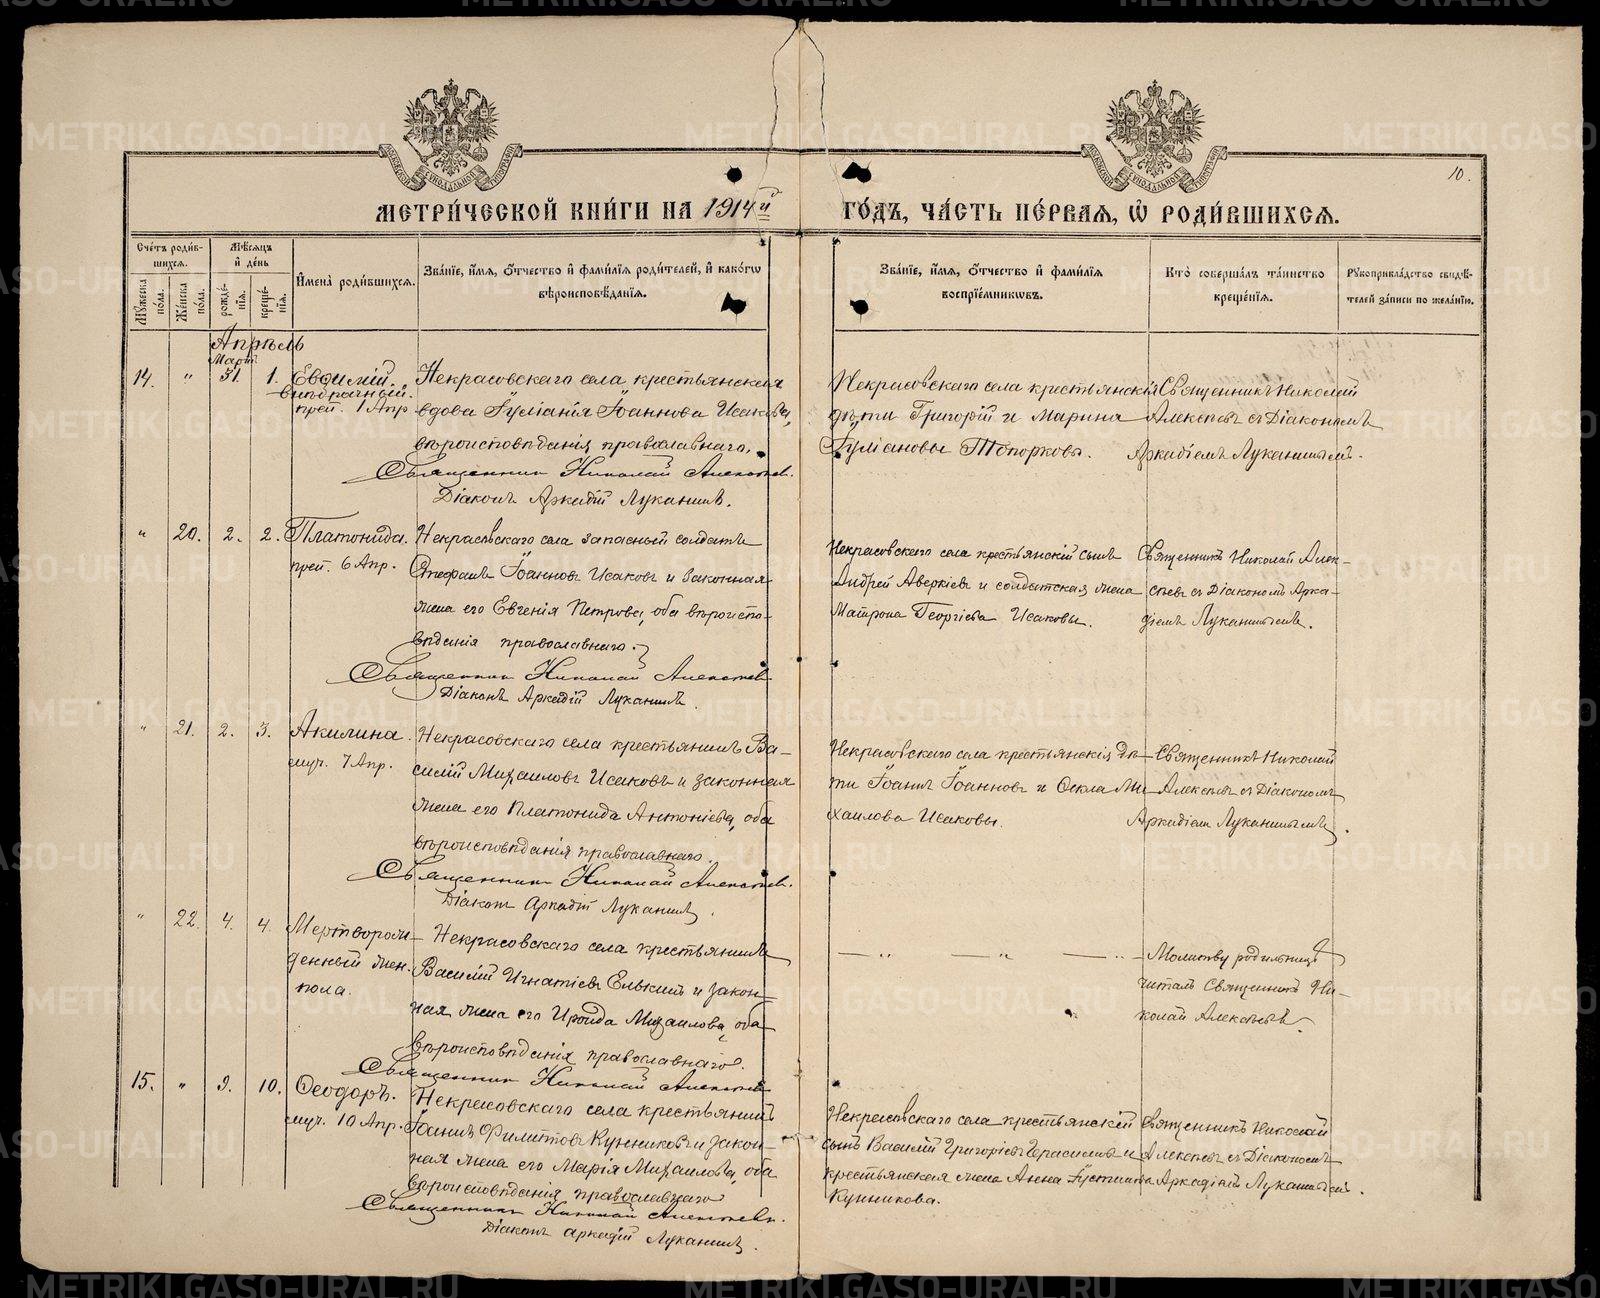 МЕТРИ́ЧЕСКОЙ КНИ́ГИ НА 1914й ГО́ДЪ, ЧА́СТЬ ПЕ́РВАЯ, Ѡ РОДИ́ВШИХСЯ.
10.
Сче́тъ роди́в-
шихся.
Мꙋ́жеска по́ла.
Же́нска по́ла.
Мѣ́сяцъ и҆ де́нь
рожде́-
нїя.
креще́-
нїя.
И҆мена̀ роди́вшихся.
Зва́нїе, и҆́мя, ѻ҆́тчество и҆ фами́лїя роди́телей, и҆ како́гѡ
вѣроисповѣ́данїя.
Зва́нїе, и҆́мя, ѻ҆́тчество и҆ фами́лїя
воспрїе́мникѡвъ.
Кто̀ соверша́лъ та́инство
креще́нїя.
Рꙋкоприкла́дство свидѣ́-
телей за́писи по жела́нїю.
Апрѣль
Мартъ
14. " 31. 1.
Евѳимій.
внѣбрачный.
преп. 1 Апр
Некрасовскаго села крестьянская
вдова Іуліанія Іоаннова Исакова,
вѣроисповѣданія православнаго.
Священникъ Николай Алексѣев.
Діаконъ Аркадій Луканинъ.
Некрасовскаго села крестьянскія
дѣти Григорій и Марина
Іуліановы Топорковы.
Священникъ Николай
Алексѣевъ съ Діакономъ
Аркадіемъ Луканинымъ.
" 20. 2. 2.
Платонида.
преп. 6 Апр.
Некрасовскаго села запасный солдатъ
Стефанъ Іоанновъ Исаковъ и законная
жена его Евгенія Петрова, оба вѣроиспо-
вѣданія православнаго.
Священникъ Николай Алексѣев
Діаконъ Аркадій Луканинъ.
Некрасовскаго села крестьянскій сынъ
Андрей Аверкіевъ и солдатская жена
Матрона Георгіева Исаковы.
Священникъ Николай Алек-
сѣевъ съ Діакономъ Арка-
діемъ Луканинымъ.
" 21. 2. 3.
Акилина.
муч. 7 Апр.
Некрасовскаго села крестьянинъ Ва-
силій Михаиловъ Исаковъ и законная
жена его Платонида Антоніева, оба
вѣроисповѣданія православнаго.
Священникъ Николай Алексѣев.
Діаконъ Аркадій Луканинъ.
Некрасовскаго села крестьянскія дѣ-
ти Іоаннъ Іоанновъ и Ѳекла Ми-
хаилова Исаковы.
Священникъ Николай
Алексѣевъ съ Діакономъ
Аркадіемъ Луканинымъ.
" 22. 4. 4.
Мертворож-
денный жен.
пола.
Некрасовскаго села крестьянинъ
Василій Игнатіевъ Елькинъ и закон-
ная жена его Ираида Михаилова, оба
вѣроисповѣданія православнаго.
Священникъ Николай Алексѣев
— " — " — " —
Молитву родильницѣ
читалъ Священникъ Ни-
колай Алексѣевъ.
15. " 9. 10.
Ѳеодоръ.
муч. 10 Апр.
Некрасовскаго села крестьянинъ
Іоаннъ Филипповъ Кунниковъ и закон-
ная жена его Марія Михаилова, оба
вѣроисповѣданія православнаго
Священникъ Николай Алексѣевъ.
Діаконъ Аркадій Луканинъ.
Некрасовскаго села крестьянскій
сынъ Василій Григоріевъ Герасимовъ и
крестьянская жена Анна Іустинова
Кунникова.
Священникъ Николай
Алексѣевъ съ Діакономъ
Аркадіемъ Луканиным.
METRIKI.GASO-URAL.RU